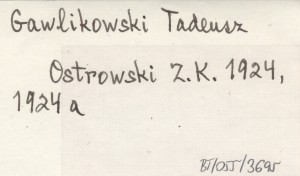 Gawlikowski Tadeusz
Ostrowski Z.K. 1924,
1924 a